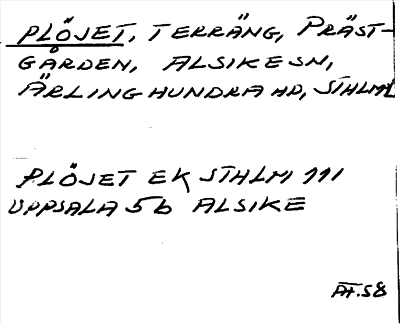 PLÖJET, TERRÄNG, PRÄST-
GÅRDEN, ALSIKE SN,
ÄRLINGHUNDRA HD, STHLM L
PLÖJET EK STHLM 111
UPPSALA 5b ALSIKE
ÄT.58